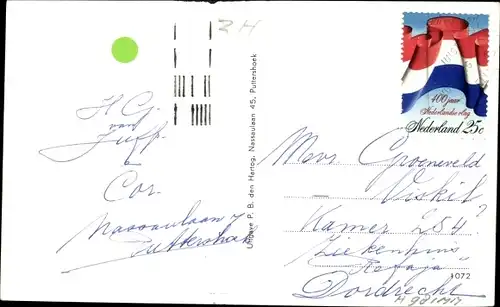 2H
H.G.
van
Juff.
Cor.
Nassaulaan 7
Puttershoek
Uitgave P. B. den Hertog, Nassaulaan 45, Puttershoek
400 jaar
Nederlandse vlag
Nederland 25c
Mevr Groeneveld
Viskil
Kamer 254
Ziekenhuis
"Refaja"
1072
Dordrecht